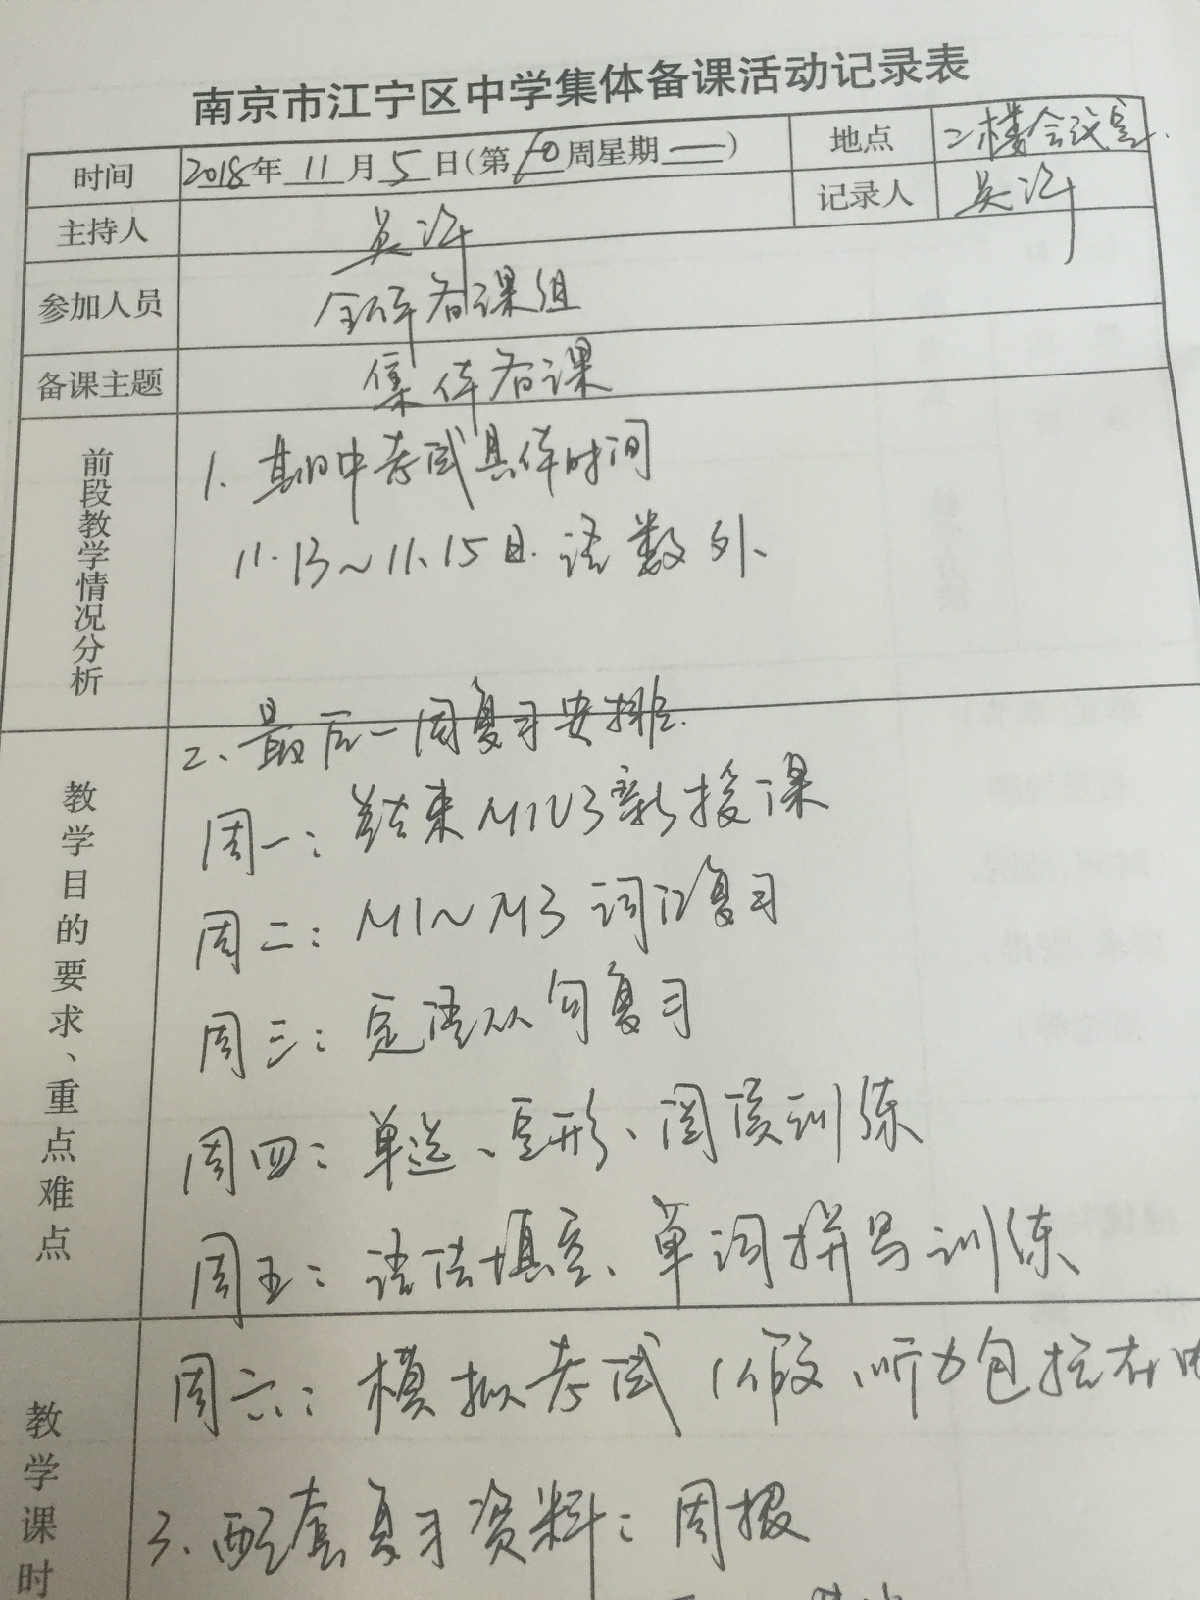 南京市江宁区中学集体备课活动记录表
时间 2018年11月5日(第10周星期一) 地点 二楼会议室
主持人 吴 记录人 吴
参加人员 全体备课组
备课主题 集体备课
前段教学情况分析
1. 期中考试具体时间
11.13~11.15日. 语数外、
教学目的要求、重点难点
2、最后一周复习安排.
周一：结束M1U3新授课
周二：M1~M3 词汇复习
周三：定语从句复习
周四：单选、完形、阅读训练
周五：语法填空、单词拼写训练
教学课时
周六：模拟考试 听力包括在内
3、配套复习资料：周报